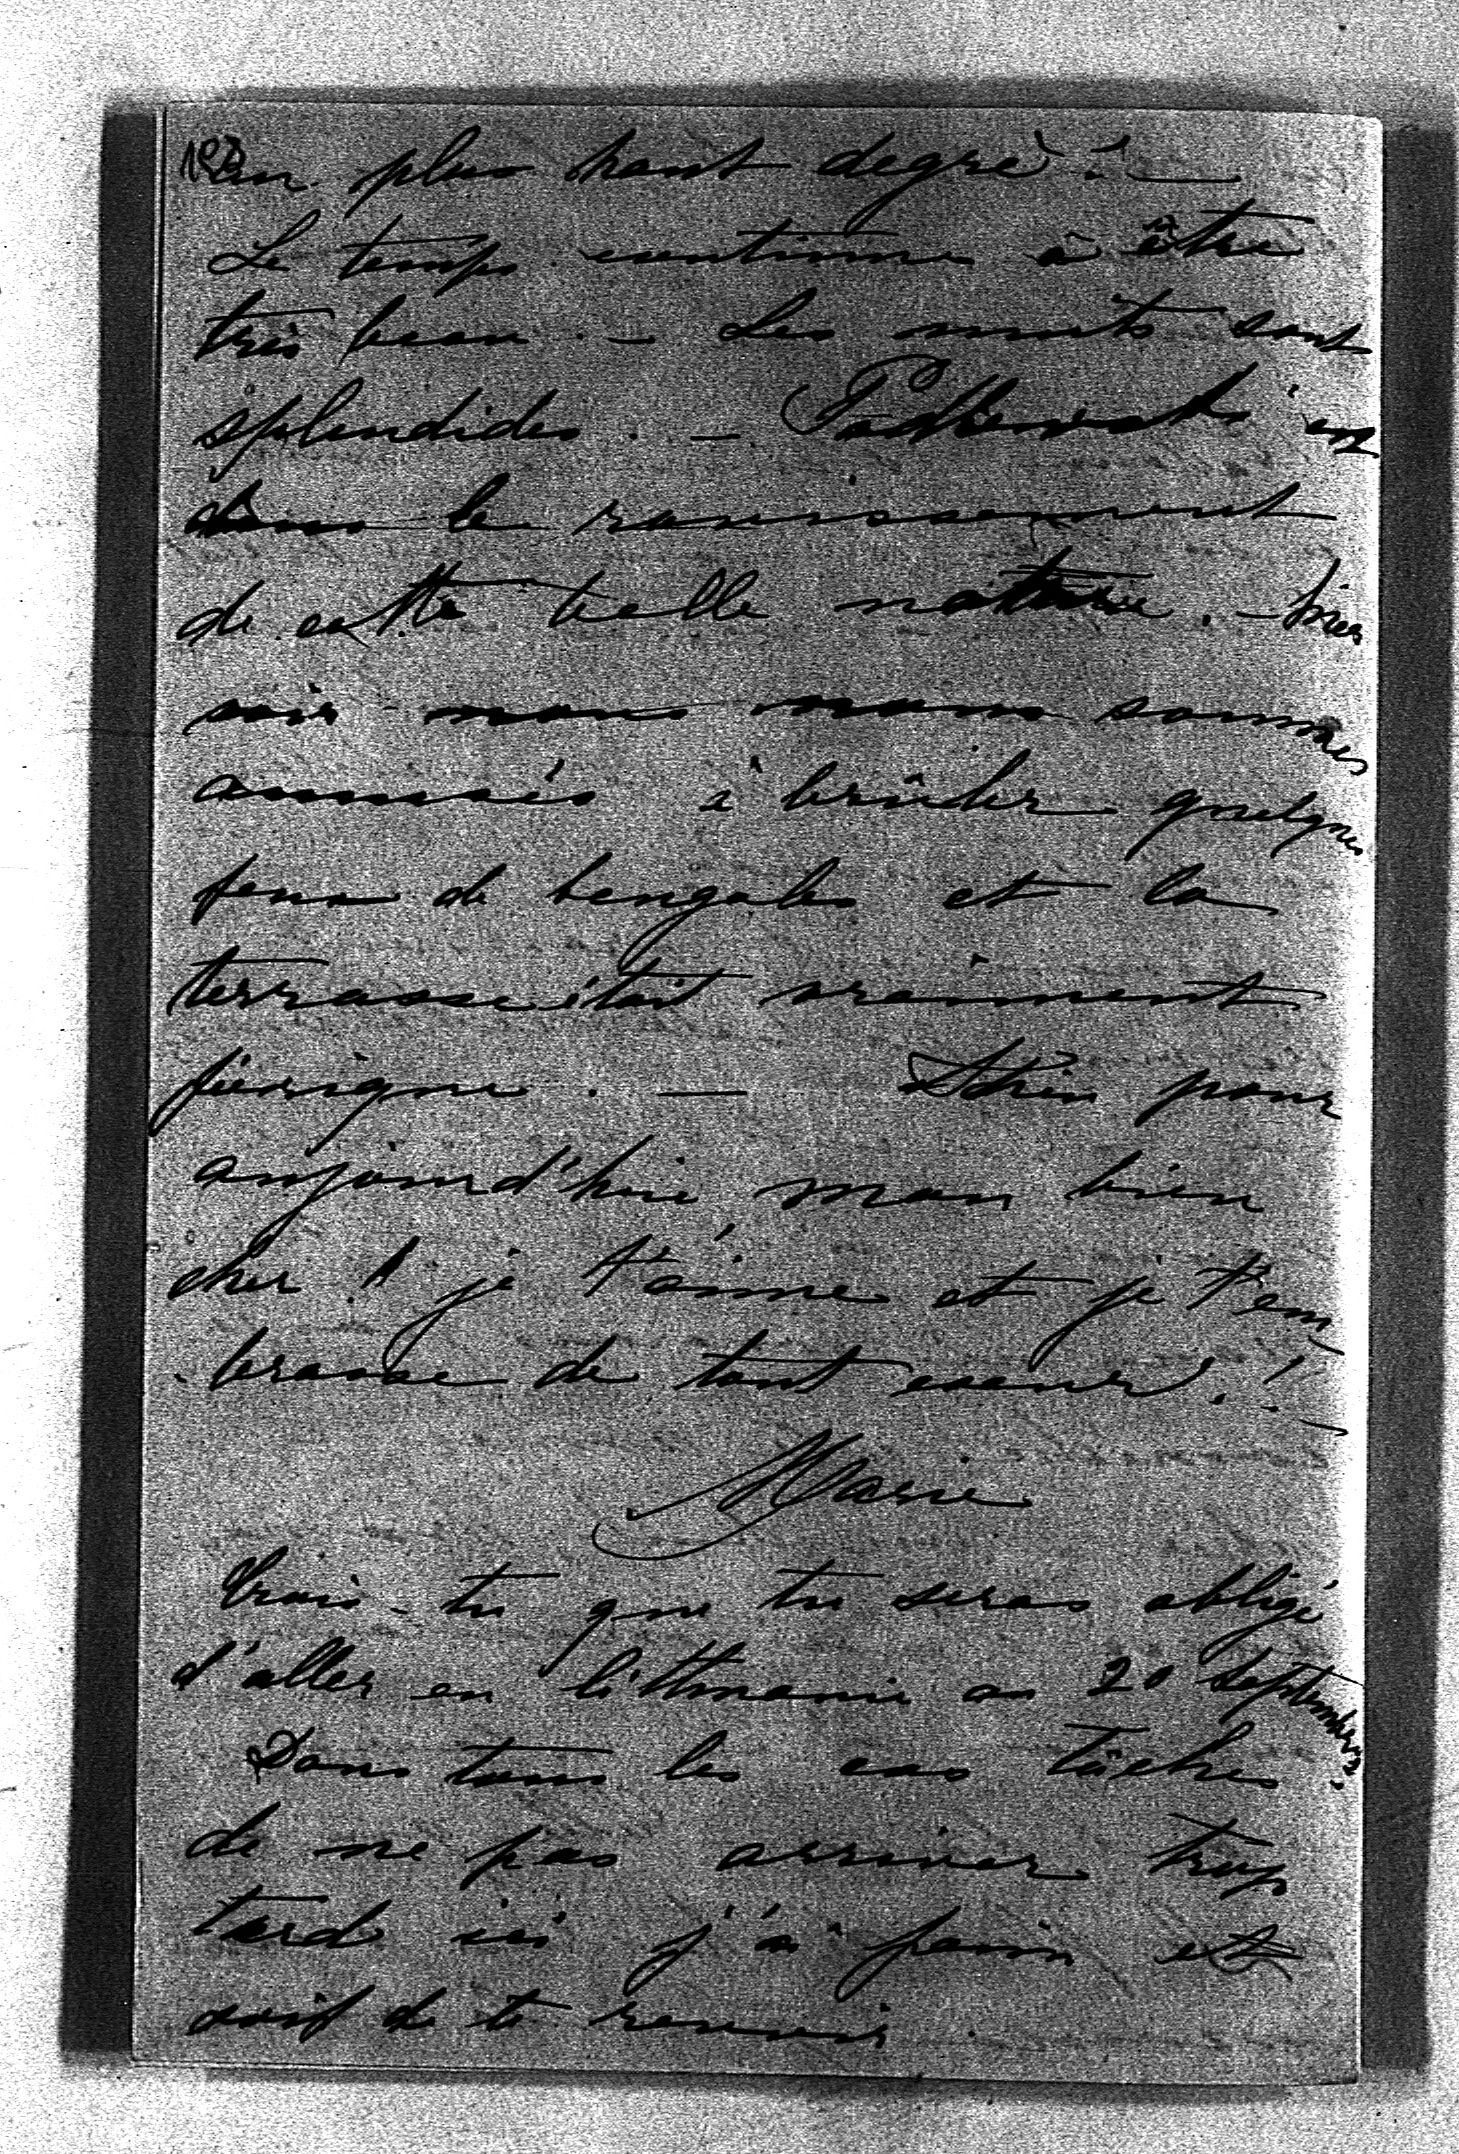 au plus haut degrè! —
Le temps continue à être
très beau. — Les nuits sont
splendides. — est
dans le ravissement
de cette belle nature. — hier
soir nous nous sommes
amusés à brûler quelques
feux de bengales et la
terrasse était vraiment
féerique. — Adieu pour
aujourd'hui, mon bien
cher! je t'aime et je t'em
brasse de tout coeur! —
Marie
Crois-tu que tu seras obligé
d'aller en Litthuanie au 20 Septembre?
Dans tous les cas tâches
de ne pas arriver trop
tard ici j'ai faim et
soif de te revoir.